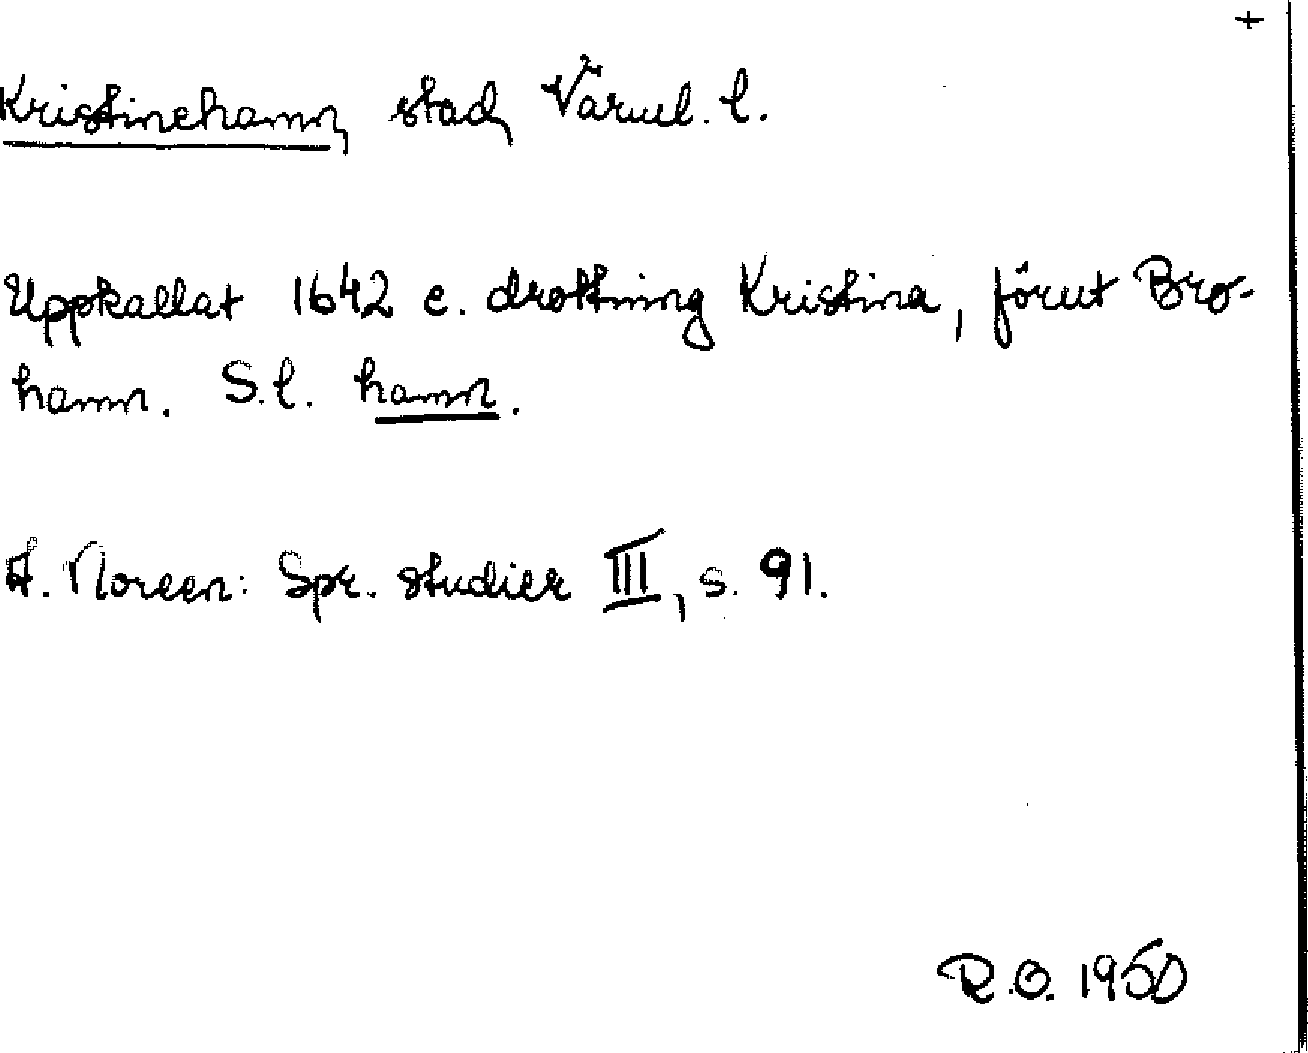 +
Kristinehamn, stad, Värml. l.
Uppkallat 1642 e. drottning Kristina, förut Bro-
hamn. S.l. hamn.
A. Noreen: Spr. studier III, s. 91.
R.O. 1950